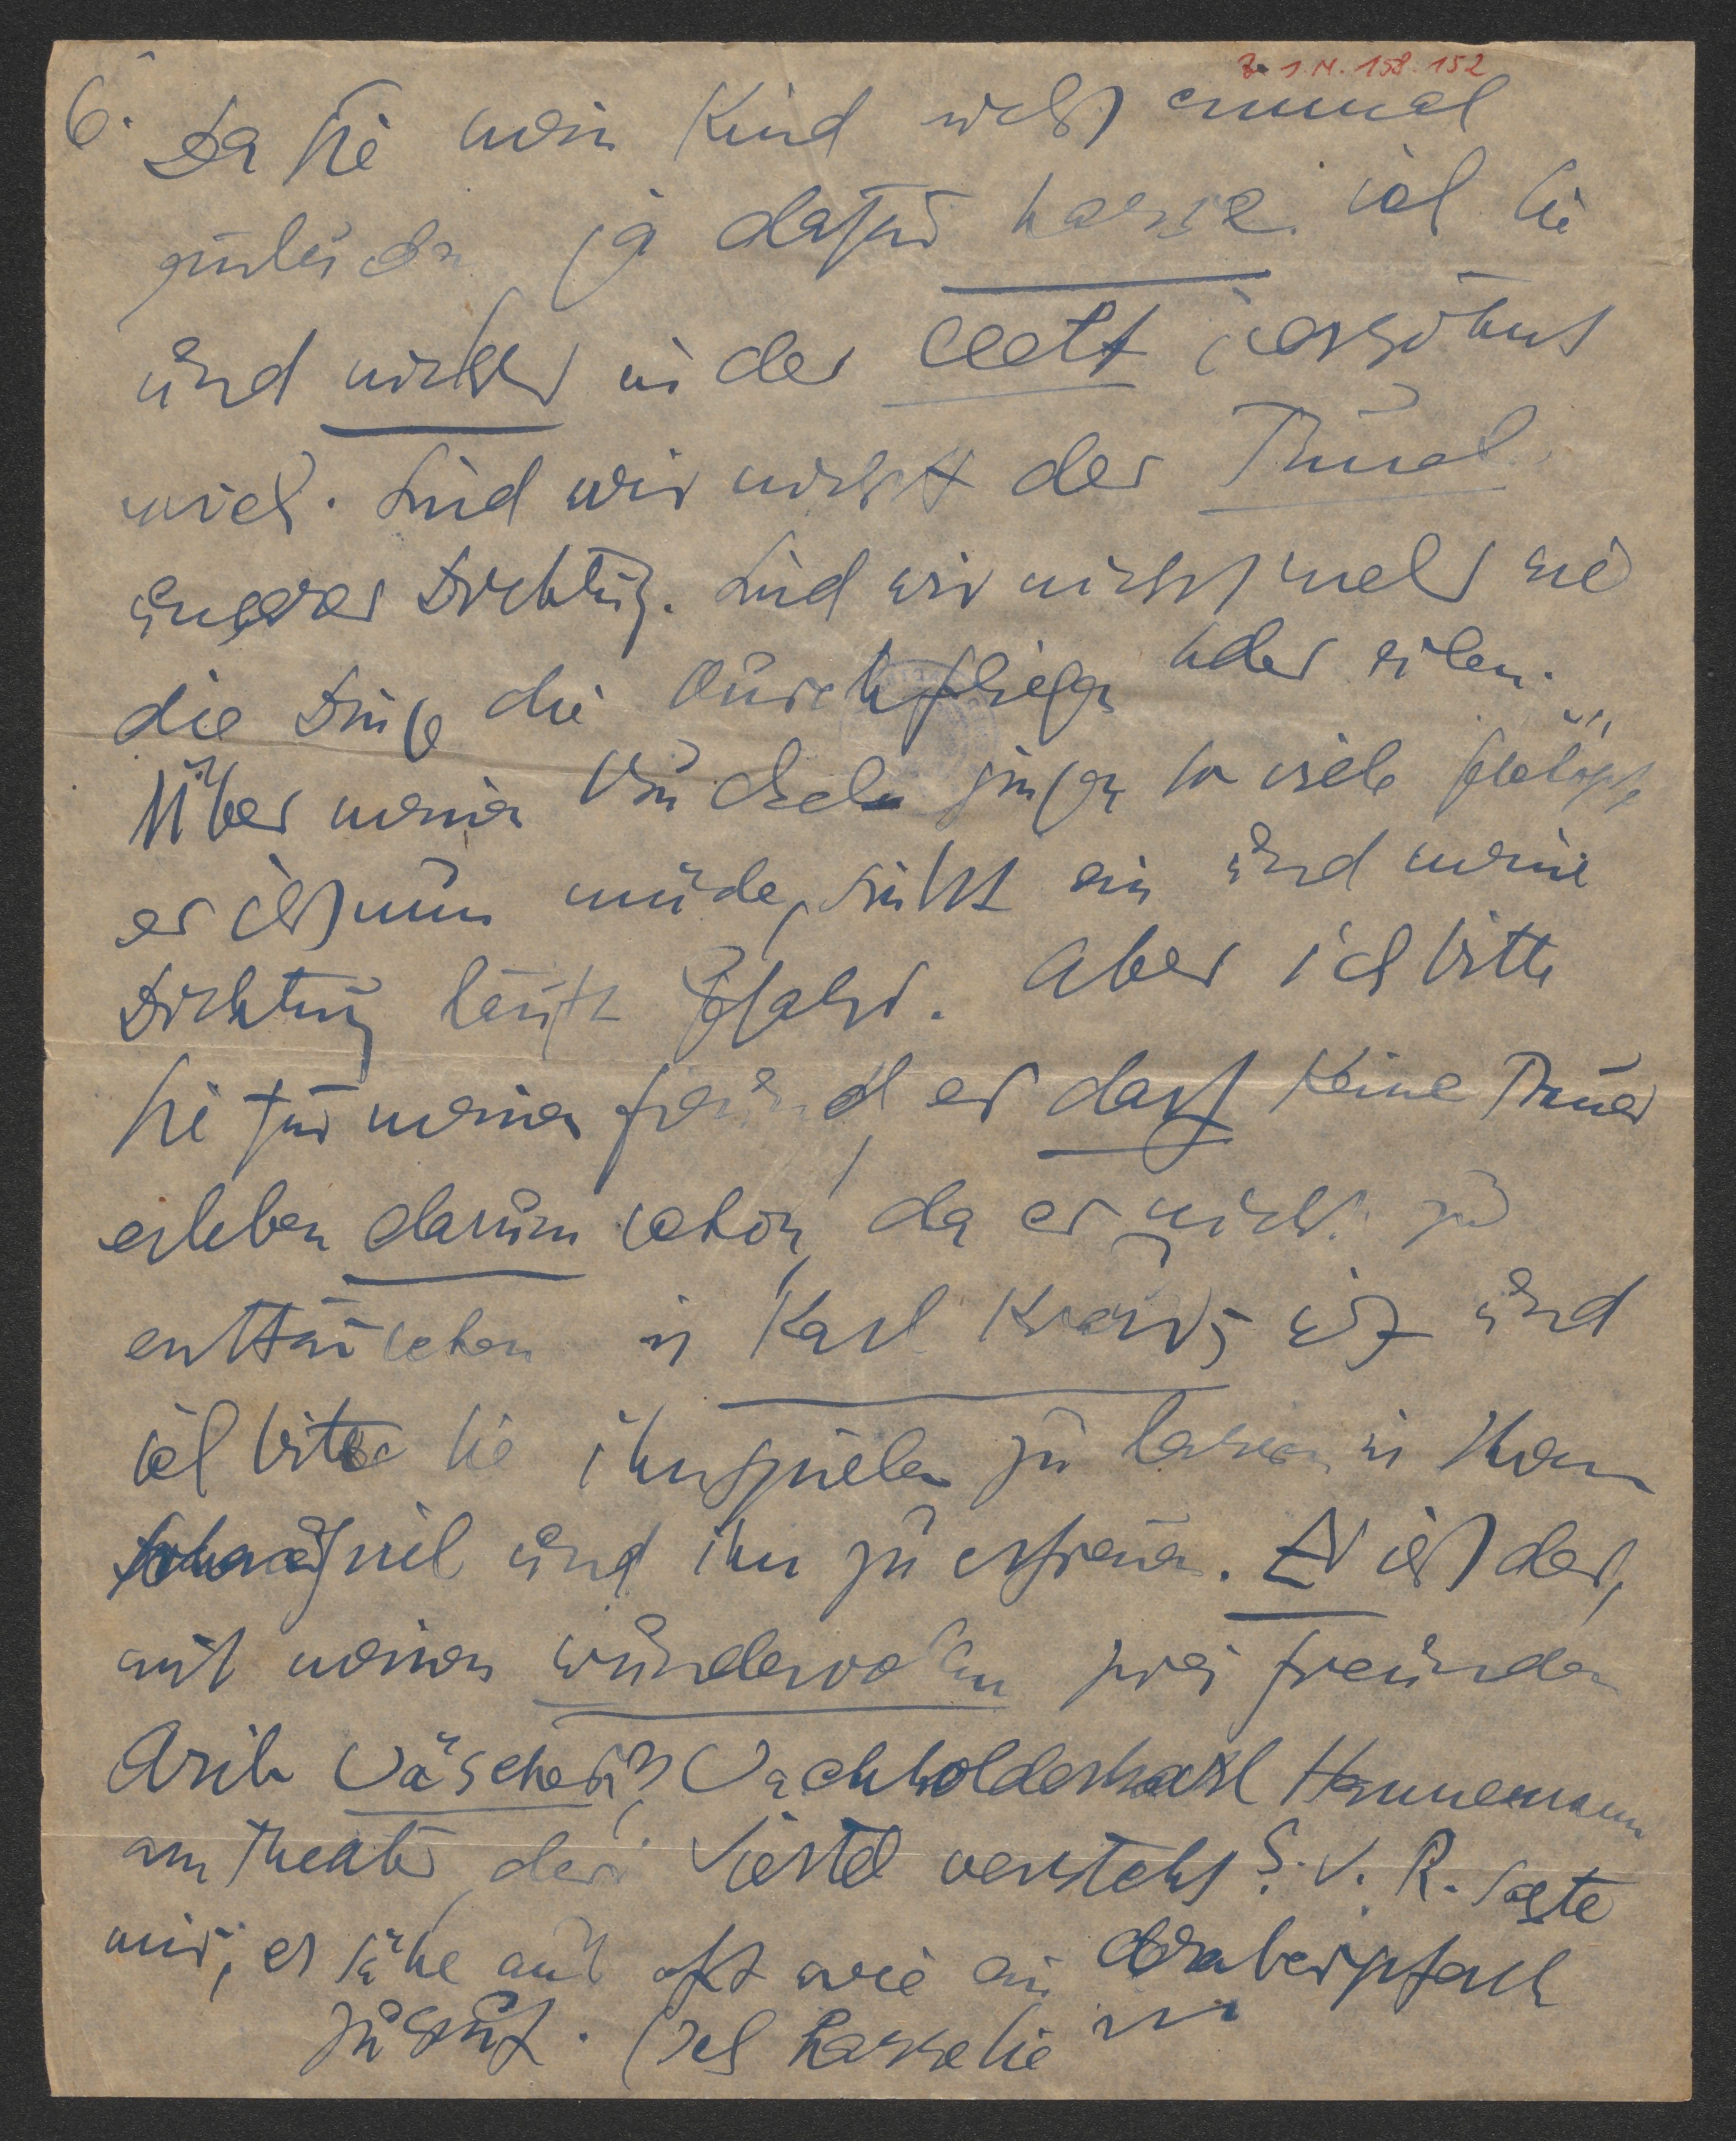 Z. 1. N. 158.152
6.
Da Sie mein Kind nicht einmal
ja dafür hasse ich Sie
und nichts in der Welt versöhnt
mich. Sind wir nicht der Tunnel
unserer Dichtung. Sind wir nicht mehr wie
die Dinge die durchfliegen oder eilen.
Über meinen Buckel gingen so viele
er ist nun müde, sinkt ein und meine
Dichtung läuft Gefahr. Aber ich bitte
Sie für meinen Freund, er darf keine Trauer
erleben darum schon, da er nicht zu
enttäuschen in Karl Kraus ist und
ich bitte Sie ihn spielen zu lassen in Ihrem
und ihn zu erfreuen. Er ist der,
mit meinen wundervollen zwei Freunden
Aribert Wäscher u. Wachholderkarl Hannemann
am Theater der Viertel versteht. S. V. R. sagte
mir, er sähe aus oft wie ein Araberpferd
zu. (Ich hasse Sie